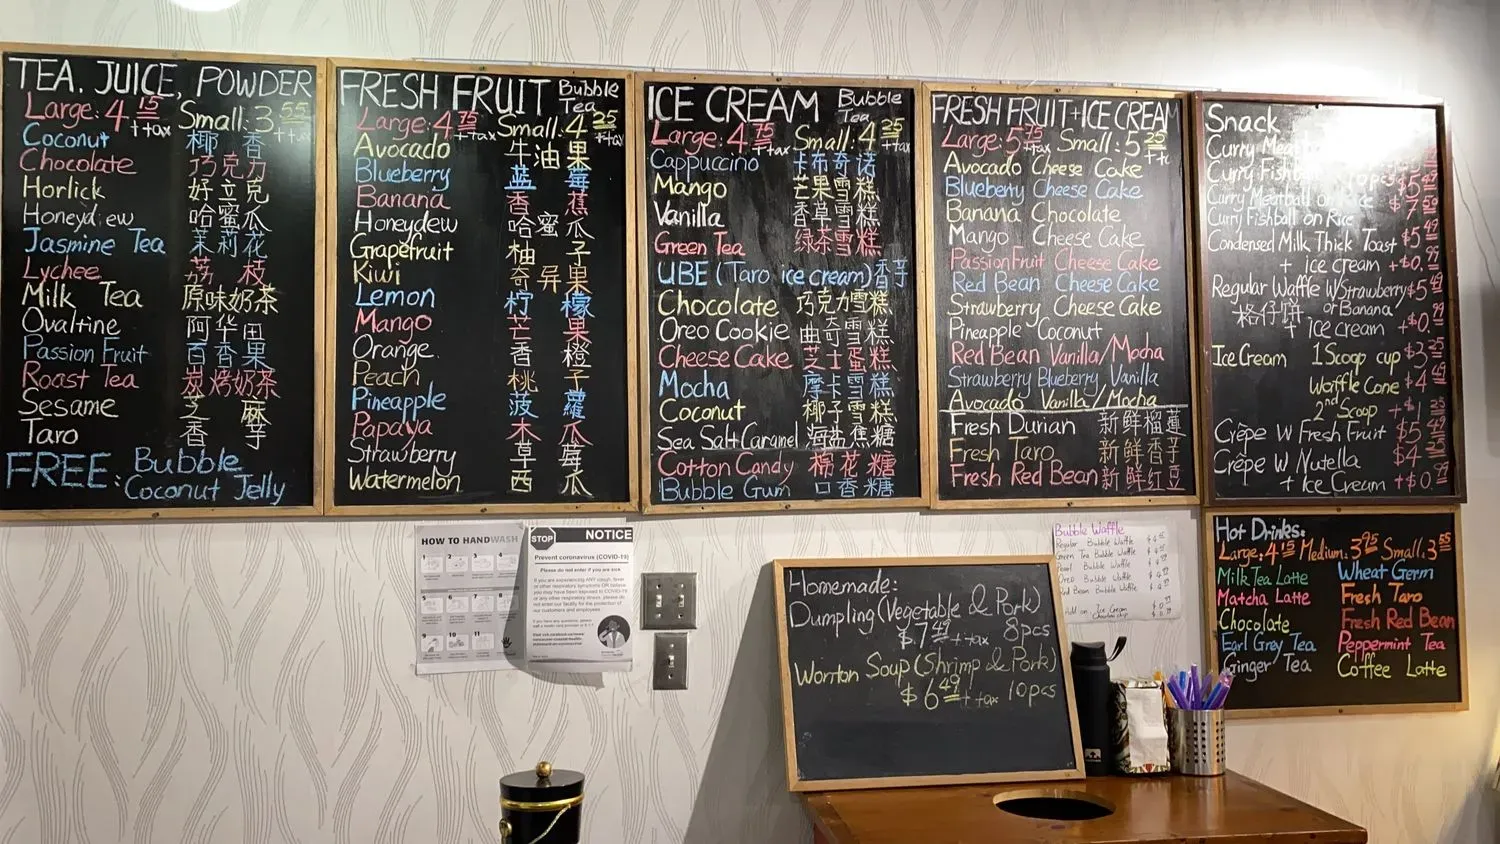 TEA. JUICE, POWDER
Large: 4 15 + tax Small: 3 55 + tax
Coconut 椰香
Chocolate 巧克力
Horlick 好立克
Honeydew 哈蜜瓜
Jasmine Tea 茉莉花
Lychee 荔枝
Milk Tea 原味奶茶
Ovaltine 阿华田
Passion Fruit 百香果
Roast Tea 炭烤奶茶
Sesame 芝麻
Taro 香芋
FREE: Bubble
Coconut Jelly
FRESH FRUIT Bubble Tea
Large: 4 75 + tax Small: 4 25 + tax
Avocado 牛油果
Blueberry 蓝莓
Banana 香蕉
Honeydew 哈蜜瓜
Grapefruit 柚子
Kiwi 奇异果
Lemon 柠檬
Mango 芒果
Orange 香橙
Peach 桃子
Pineapple 菠蘿
Papaya 木瓜
Strawberry 草莓
Watermelon 西瓜
ICE CREAM Bubble Tea
Large: 4 75 + tax Small: 4 25 + tax
Cappuccino 卡布奇诺
Mango 芒果雪糕
Vanilla 香草雪糕
Green Tea 绿茶雪糕
UBE (Taro ice cream) 香芋
Chocolate 巧克力雪糕
Oreo Cookie 曲奇雪糕
Cheese Cake 芝士蛋糕
Mocha 摩卡雪糕
Coconut 椰子雪糕
Sea Salt Caramel 海盐焦糖
Cotton Candy 棉花糖
Bubble Gum 口香糖
FRESH FRUIT + ICE CREAM
Large: 5 75 + tax Small: 5 25
Avocado Cheese Cake
Blueberry Cheese Cake
Banana Chocolate
Mango Cheese Cake
PassionFruit Cheese Cake
Red Bean Cheese Cake
Strawberry Cheese Cake
Pineapple Coconut
Red Bean Vanilla/Mocha
Strawberry Blueberry Vanilla
Avocado Vanilla/Mocha
Fresh Durian 新鲜榴蓮
Fresh Taro 新鲜香芋
Fresh Red Bean 新鲜红豆
Snack
Curry Meatball
Curry Fishball
Curry Meatball on Rice
Curry Fishball on Rice
Condensed Milk Thick Toast $5 49
+ ice cream + $0. 99
Regular Waffle W Strawberry $5 49
格仔饼 or Banana
+ ice cream + $0. 99
Ice Cream 1 Scoop cup $3 25
Waffle Cone $4 49
2nd Scoop + $1 25
Crêpe W Fresh Fruit $5 49
Crêpe W Nutella $4
+ Ice Cream + $0. 99
HOW TO HANDWASH
STOP NOTICE
Prevent coronavirus (COVID-19)
Please do not enter if you are sick
Homemade:
Dumpling (Vegetable & Pork)
$ 7 49 + tax 8pcs
Wonton Soup (Shrimp & Pork)
$ 6 49 + tax 10pcs
Bubble Waffle
Regular Bubble Waffle
Green Tea Bubble Waffle
Pearl Bubble Waffle
Oreo Bubble Waffle
Red Bean Bubble Waffle
Add on: Ice Cream
Chocolate chip
Hot Drinks:
Large: 4 15 Medium: 3 95 Small: 3 55
Milk Tea Latte Wheat Germ
Matcha Latte Fresh Taro
Chocolate Fresh Red Bean
Earl Grey Tea Peppermint Tea
Ginger Tea Coffee Latte